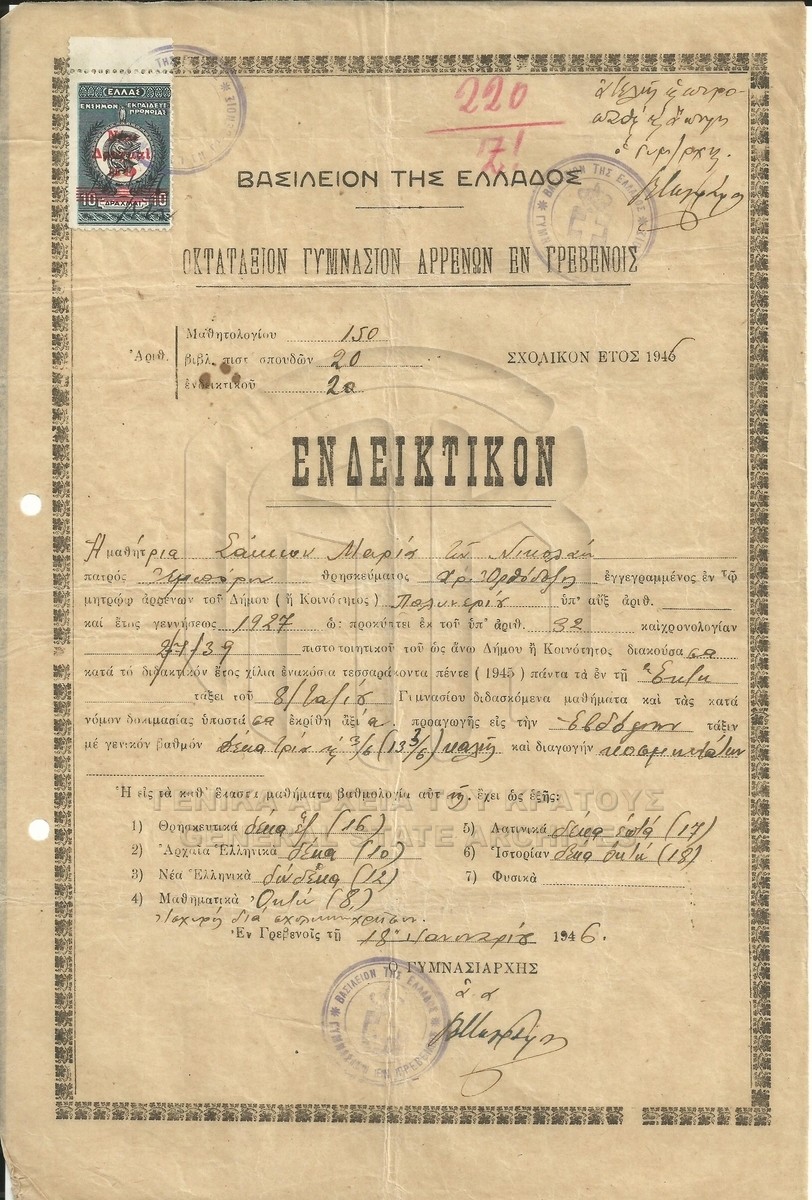 ΕΛΛΑΣ
ΕΝΣΗΜΟΝ ΕΚΠΑΙΔΕΥΤ. ΠΡΟΝΟΙΑΣ
10 ΔΡΑΧΜΑΙ 10
220
ΒΑΣΙΛΕΙΟΝ ΤΗΣ ΕΛΛΑΔΟΣ
ΟΚΤΑΤΑΞΙΟΝ ΓΥΜΝΑΣΙΟΝ ΑΡΡΕΝΩΝ ΕΝ ΓΡΕΒΕΝΟΙΣ
Μαθητολογίου 150
Ἀριθ. βιβλ. πιστ σπουδών 20 ΣΧΟΛΙΚΟΝ ΕΤΟΣ 1946
ἐνδεικτικοῦ 20
ΕΝΔΕΙΚΤΙΚΟΝ
Ἡ μαθήτρια Μαρία τοῦ Νικολάου
πατρὸς θρησκεύματος Χρ. Ὀρθόδοξος ἐγγεγραμμένος ἐν τῷ
μητρῴῳ ἀρρένων τοῦ Δήμου (ἢ Κοινότητος) Πολυνερίου ὑπ' αὔξ ἀριθ.
καὶ ἔτος γεννήσεως 1927 ὡς προκύπτει ἐκ τοῦ ὑπ' ἀριθ. 32 καὶ χρονολογίαν
2/1/39 πιστοποιητικοῦ τοῦ ὡς ἄνω Δήμου ἢ Κοινότητος διακούσασα
κατὰ τὸ διδακτικὸν ἔτος χίλια ἐνακόσια τεσσαράκοντα πέντε (1945) πάντα τὰ ἐν τῇ Ἕκτῃ
τάξει τοῦ 8/ταξίου Γυμνασίου διδασκόμενα μαθήματα καὶ τὰς κατὰ
νόμον δοκιμασίας ὑποστᾶσα ἐκρίθη ἀξία προαγωγῆς εἰς τὴν Ἑβδόμην τάξιν
μὲ γενικὸν βαθμὸν δέκα τρία καὶ 3/6 (13 3/6) καλῶς καὶ διαγωγὴν κοσμιωτάτην
Ἡ εἰς τὰ καθ' ἕκαστα μαθήματα βαθμολογία αὐτῆς ἔχει ὡς ἑξῆς:
1) Θρησκευτικά δέκα ἕξ (16)
2) Ἀρχαῖα Ἑλληνικά δέκα (10)
3) Νέα Ἑλληνικὰ δώδεκα (12)
4) Μαθηματικὰ Ὀκτώ (8)
5) Λατινικά δέκα ἑπτά (17)
6) Ἱστορίαν δέκα ὀκτώ (18)
7) Φυσικὰ
Ἰσχύει διὰ σχολικὴν χρῆσιν.
Ἐν Γρεβενοῖς τῇ 18ῃ Ἰανουαρίου 1946.
Ὁ ΓΥΜΝΑΣΙΑΡΧΗΣ
ΒΑΣΙΛΕΙΟΝ ΤΗΣ ΕΛΛΑΔΟΣ
ΓΥΜΝΑΣΙΟΝ ΕΝ ΓΡΕΒΕΝΟΙΣ
ΓΕΝΙΚΑ ΑΡΧΕΙΑ ΤΟΥ ΚΡΑΤΟΥΣ
GENERAL STATE ARCHIVES